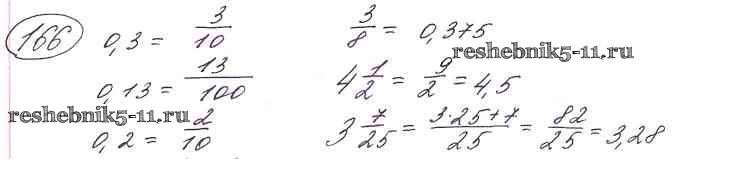 166 0,3 = 3/10 3/8 = 0,375
reshebnik5-11.ru
0,13 = 13/100 4 1/2 = 9/2 = 4,5
reshebnik5-11.ru
0,2 = 2/10 3 7/25 = 3·25+7/25 = 82/25 = 3,28